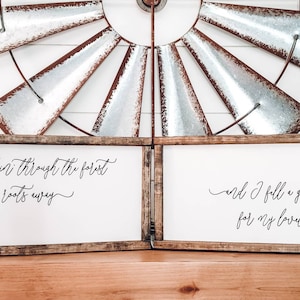 through the forest
roots away
and I fell a
for my